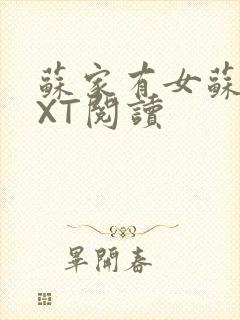 蘇家有女蘇
XT閱讀
畢開春